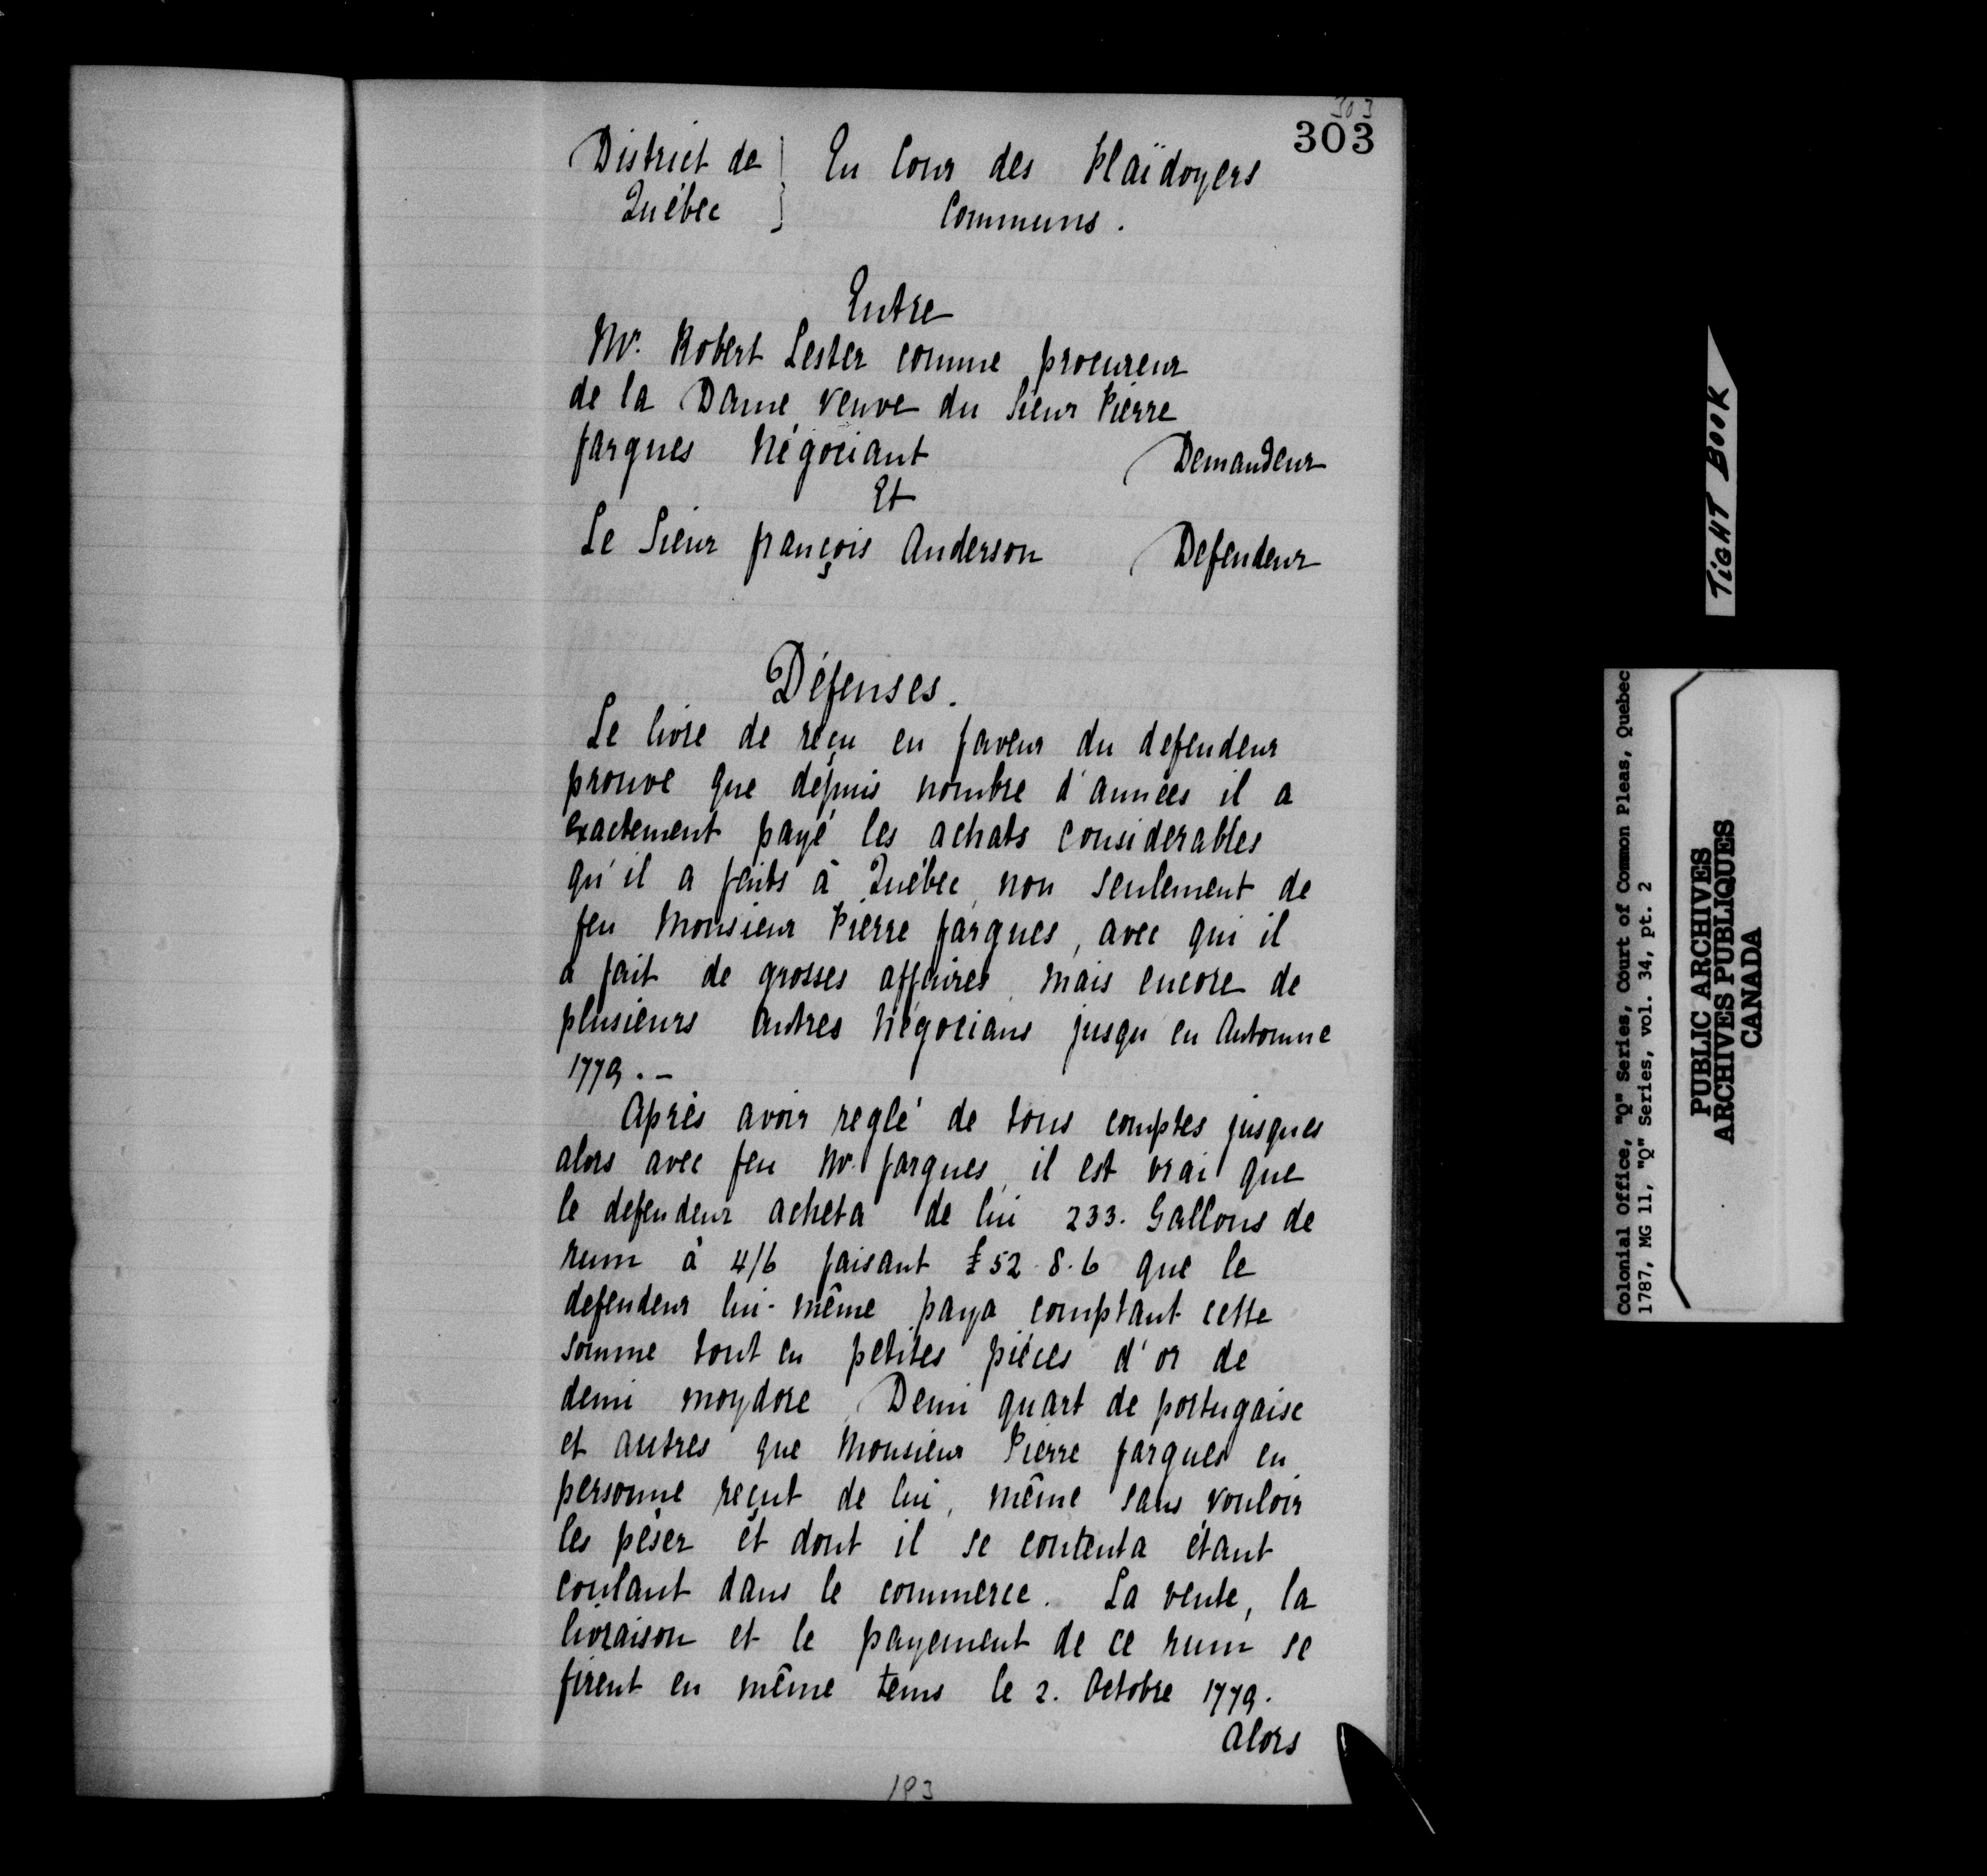 303
303
District de } En Cour des Plaïdoyers
Québec } Communs.
Entre
Mr. Robert Lester comme procureur
de la Dame veuve du Sieur Pierre
fargues Négociant Demandeur
Et
Le Sieur françois Anderson Defendeur
Défenses.
Le livre de reçu en faveur du defendeur
prouve que depuis nombre d'années il a
exactement payé les achats considerables
qu'il a faits à Québec, non seulement de
feu Monsieur Pierre fargues, avec qui il
a fait de grosses affaires, mais encore de
plusieurs autres Négocians jusqu'en Automne
1779. -
Après avoir reglé de tous comptes jusques
alors avec feu Mr. fargues, il est vrai que
le defendeur acheta de lui 233. Gallons de
rum à 4/6 faisant £52.8.6 que le
defendeur lui-même paya comptant cette
somme tout en petites pièces d'or de
demi moydore, Demi quart de portugaise
et autres que Monsieur Pierre fargues en
personne reçut de lui, même sans vouloir
les pèser et dont il se contenta étant
coulant dans le commerce. La vente, la
livraison et le payement de ce rum se
firent en même tems le 2. Octobre 1779.
Alors
193
TIGHT BOOK
Colonial Office, "Q" Series, Court of Common Pleas, Quebec
1787, MG 11, "Q" Series, vol. 34, pt. 2
PUBLIC ARCHIVES
ARCHIVES PUBLIQUES
CANADA